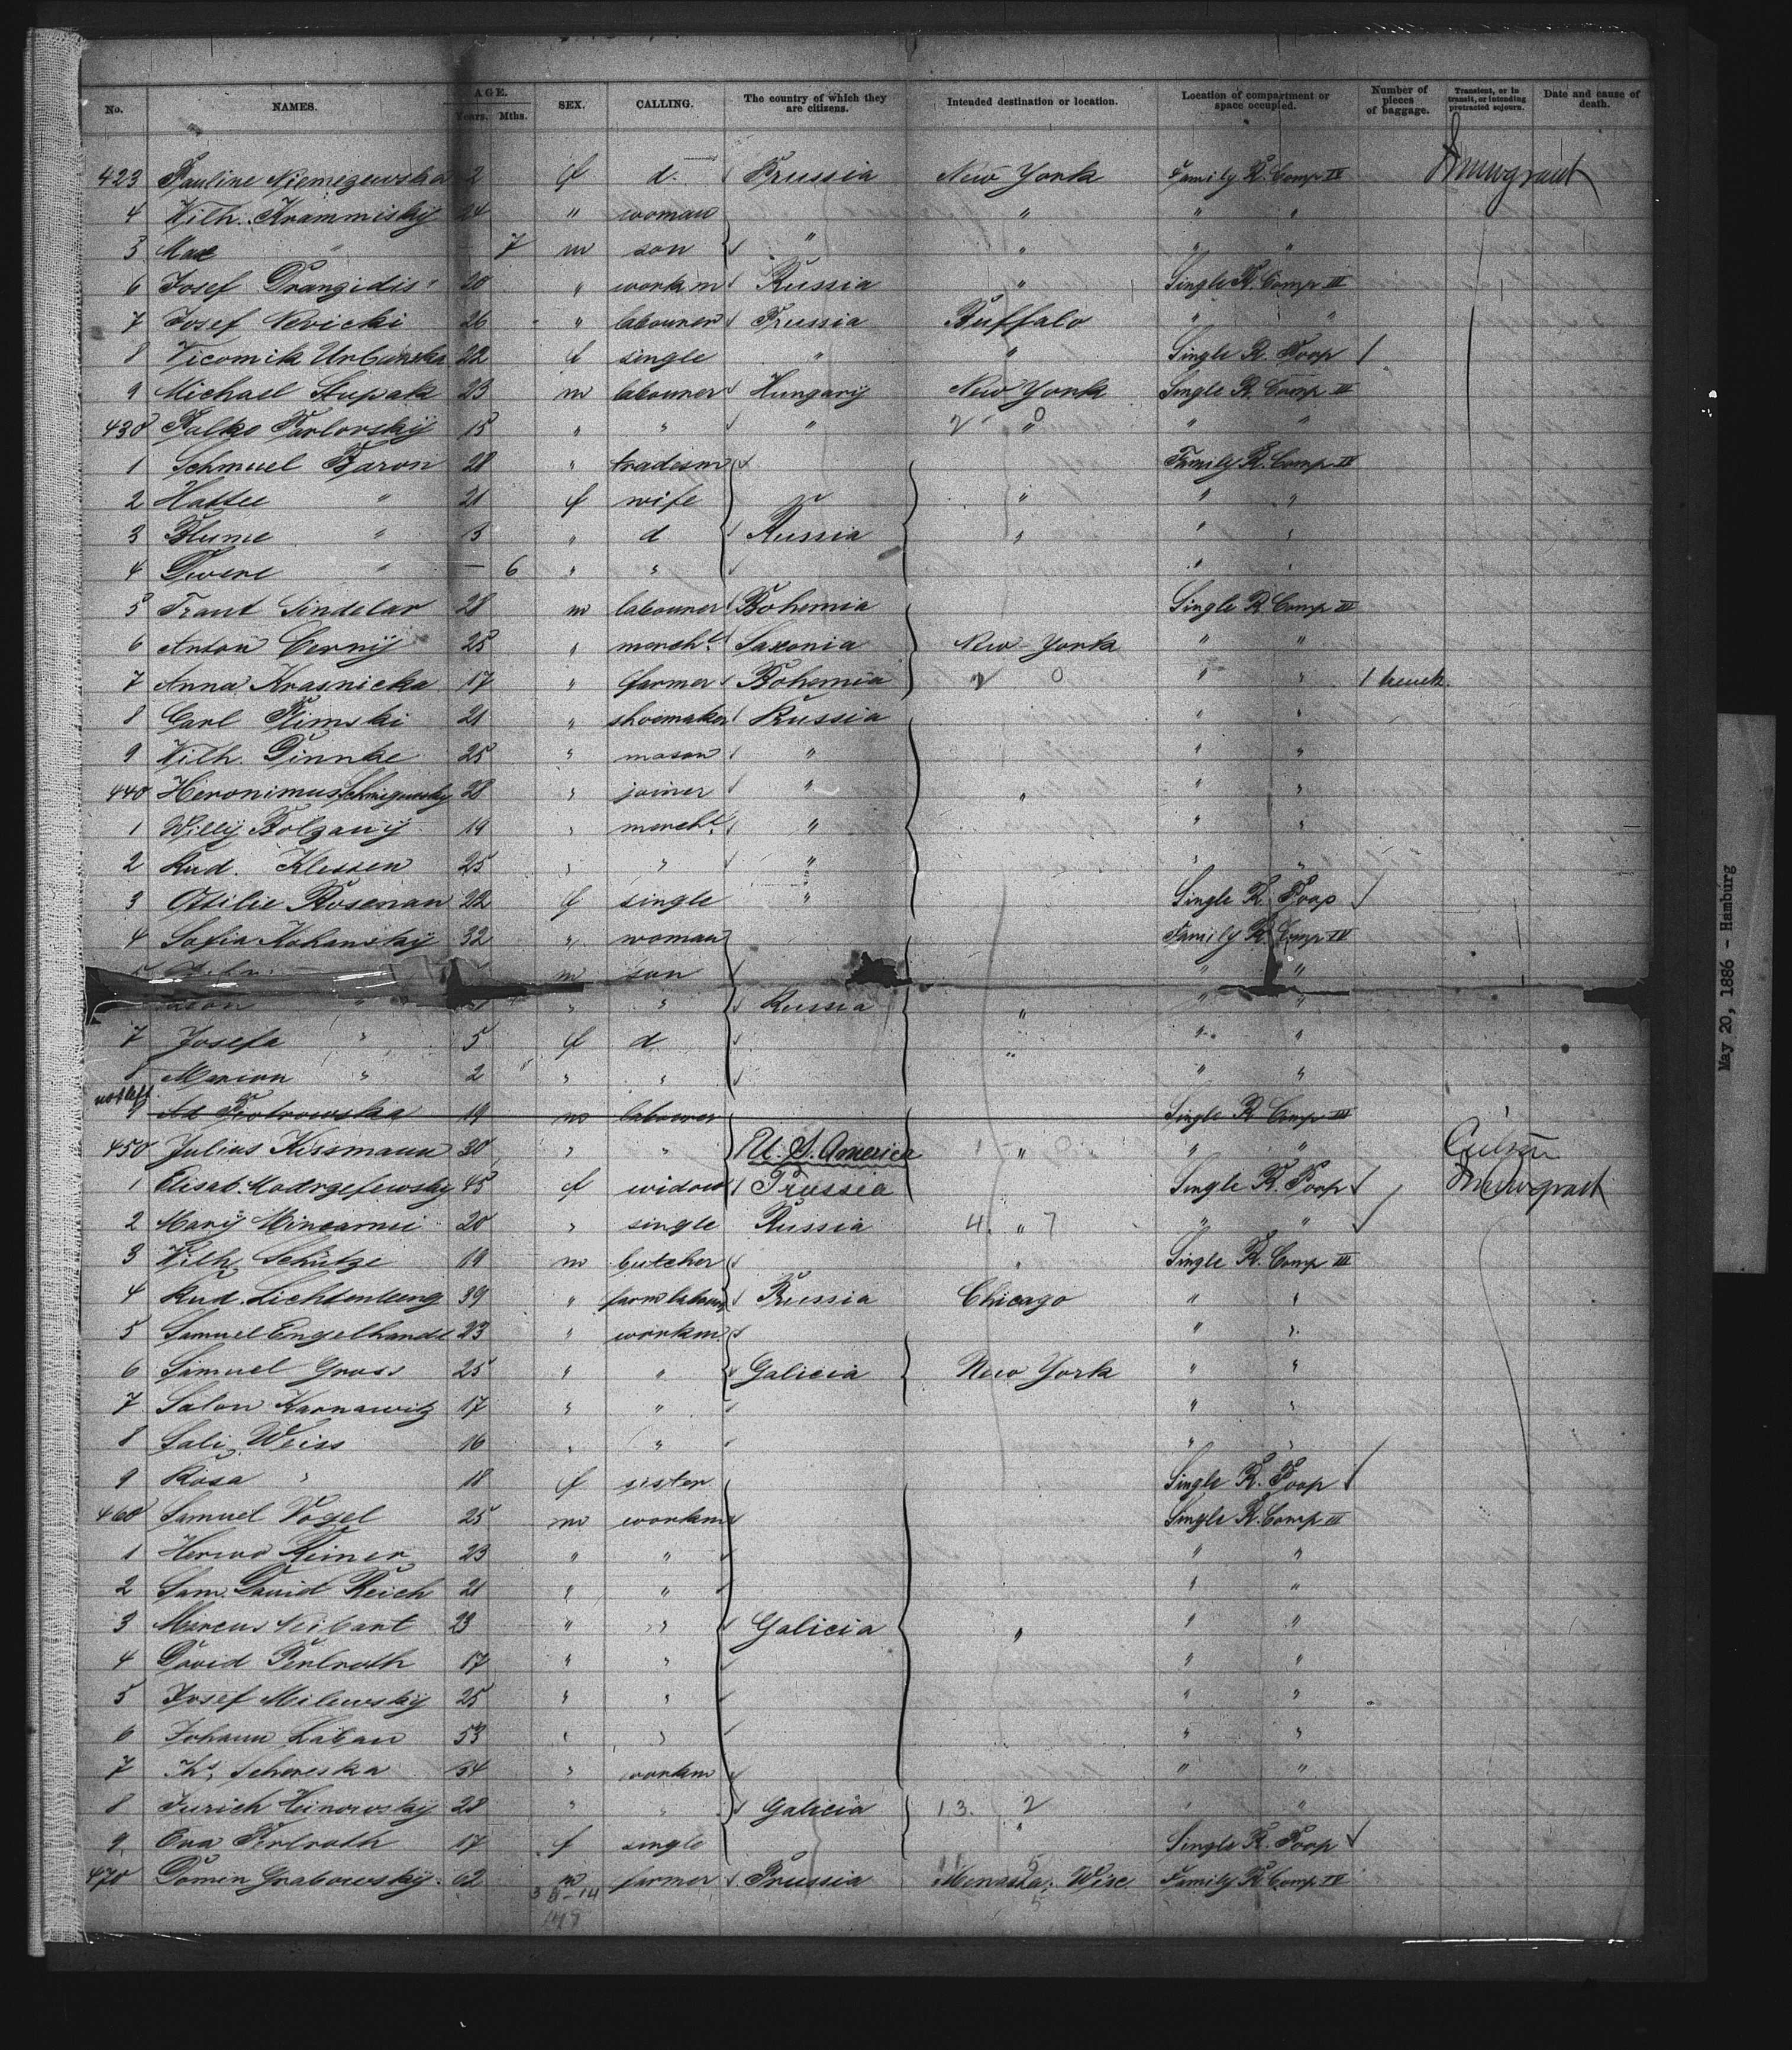 No. NAMES. AGE. Years. Mths. SEX. CALLING. The country of which they are citizens. Intended destination or location. Location of compartment or space occupied. Number of pieces of baggage. Transient, or in transit, or intending protracted sojourn. Date and cause of death.
423 Pauline Niemezewska 2 f d. Prussia New York Family R. Comp IV Immigrant
4 Wilh. Krammisky 24 " woman " " "
5 Max " 7 m son " " " "
6 Josef Drangidis 20 " workm Russia " Single R. Comp III
7 Josef Nevicki 26 " labourer Prussia Buffalo " "
8 Vicomik Urbanska 22 f single " " Single R. Poop 1
9 Michael Stupak 23 m labourer Hungary New York Single R. Comp III
430 Palko Pavlovsky 15 " " " 2 " 0 " "
1 Schmuel Baron 28 " tradesm Family R. Comp IV
2 " 21 f wife " " "
3 Blume " 3 " d Russia " " "
4 Dwere " — 6 " " " "
5 Frant Sindelar 28 m labourer Bohemia Single R. Comp III
6 Anton Cerny 25 " mercht. Saxonia New-York " "
7 Anna Krasnicka 17 " farmer Bohemia 2 0 " "
8 Carl Plimski 21 " shoemaker Prussia " "
9 Wilh. Dinnke 25 " mason " " "
440 Hieronimus 28 " joiner " " " "
1 Willy Bolzany 19 " mercht. " " "
2 Rud. Klessen 25 " " " " "
3 Otilie Rosenau 22 f single " Single R. Poop
4 Sofia Kohansky 32 " woman Family R. Comp IV
m son " "
" " " Russia " " "
7 Josefa " 5 f d " "
8 Marian " 2 " " " " "
not left
9 Ad Piotrowska 19 m labourer Single R Comp III
450 Julius Kissmann 30 " " U. S. America 1 " 0 " "
1 Elisab. Modrzefewsky 45 f widow Prussia Single R. Poop Immigrant
2 Mary 20 " single Russia 4. " 7 " "
3 Wilh. Schütze 19 m butcher " Single R. Comp III
4 Rud. Lichtenberg 39 " farmlabour Prussia Chicago " "
5 Samuel Engelhardt 23 " workm. " "
6 Samuel Gross 25 " " Galicia New York " "
7 Salon Karnawitz 17 " " " "
8 Sali Weiss 16 " " " "
9 Rosa " 18 f sister Single R. Poop
460 Samuel Vogel 25 m workm Single R. Comp III
1 Reiner 23 " " " "
2 Sam. David Reich 21 " " " "
3 Marcus 23 " " Galicia " " "
4 David Perlroth 17 " " " "
5 Josef Milewsky 25 " " " "
6 Johann Laban 53 " " " "
7 34 " workm " "
8 28 " " Galicia 13. 2 " " "
9 Eva Perlroth 17 f single Single R. Poop
470 Domin Grabowsky 62 m farmer Prussia Menasha, Wisc. Family R. Comp IV
May 20, 1886 - Hamburg